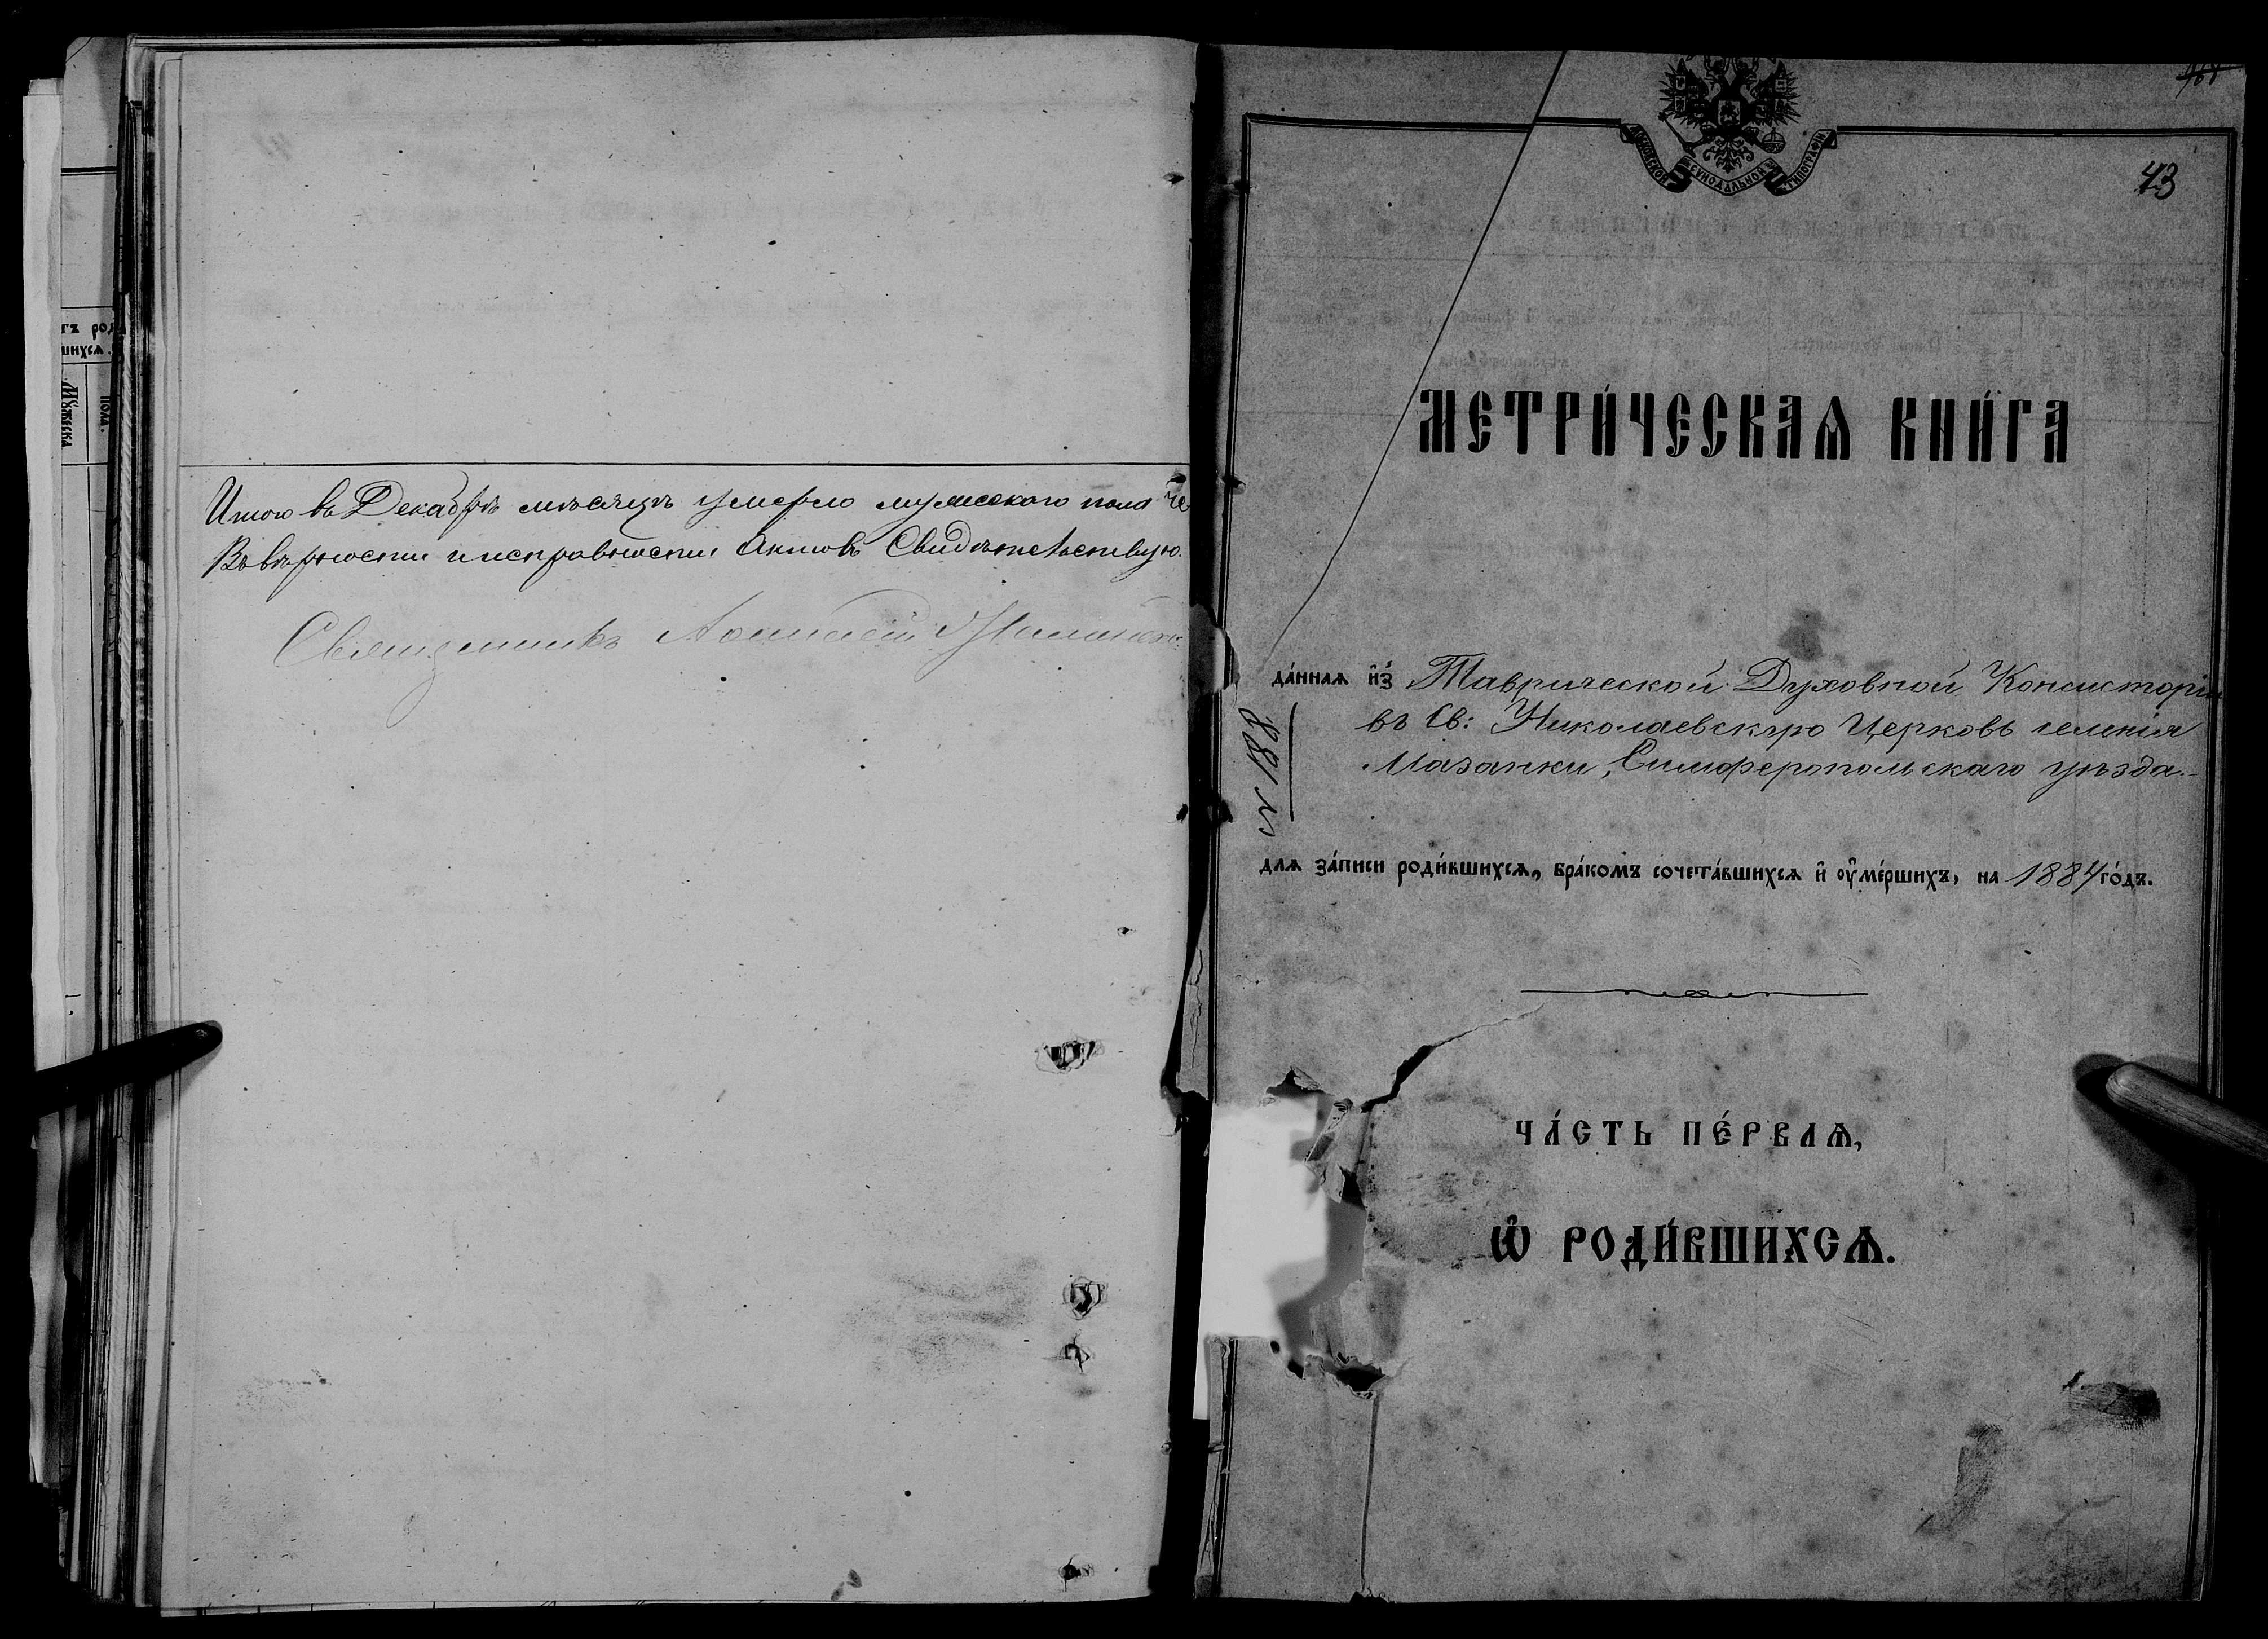 Итого въ Декабрѣ мѣсяцѣ умерло мужескаго пола че
Въ вѣрности и исправности актовъ Свидѣтельствую.
Священникъ
43
МОСКОВСКОЙ СѴНОДАЛЬНОЙ ТИПОГРАФІИ
МЕТРИ́ЧЕСКАѦ КНИ́ГА
да́ннаѧ и҆з̾ Таврической Духовной Консисторіи
въ Св: Николаевскую Церковь селенія
Мазанки, Симферопольскаго уѣзда.
для за́писи роди́вшихсѧ, бра́комъ сочета́вшихсѧ и҆ оу҆ме́ршихъ, на 1884 го́дъ.
ЧА́СТЬ ПЕ́РВАѦ,
Ѡ҆ РОДИ́ВШИХСѦ.